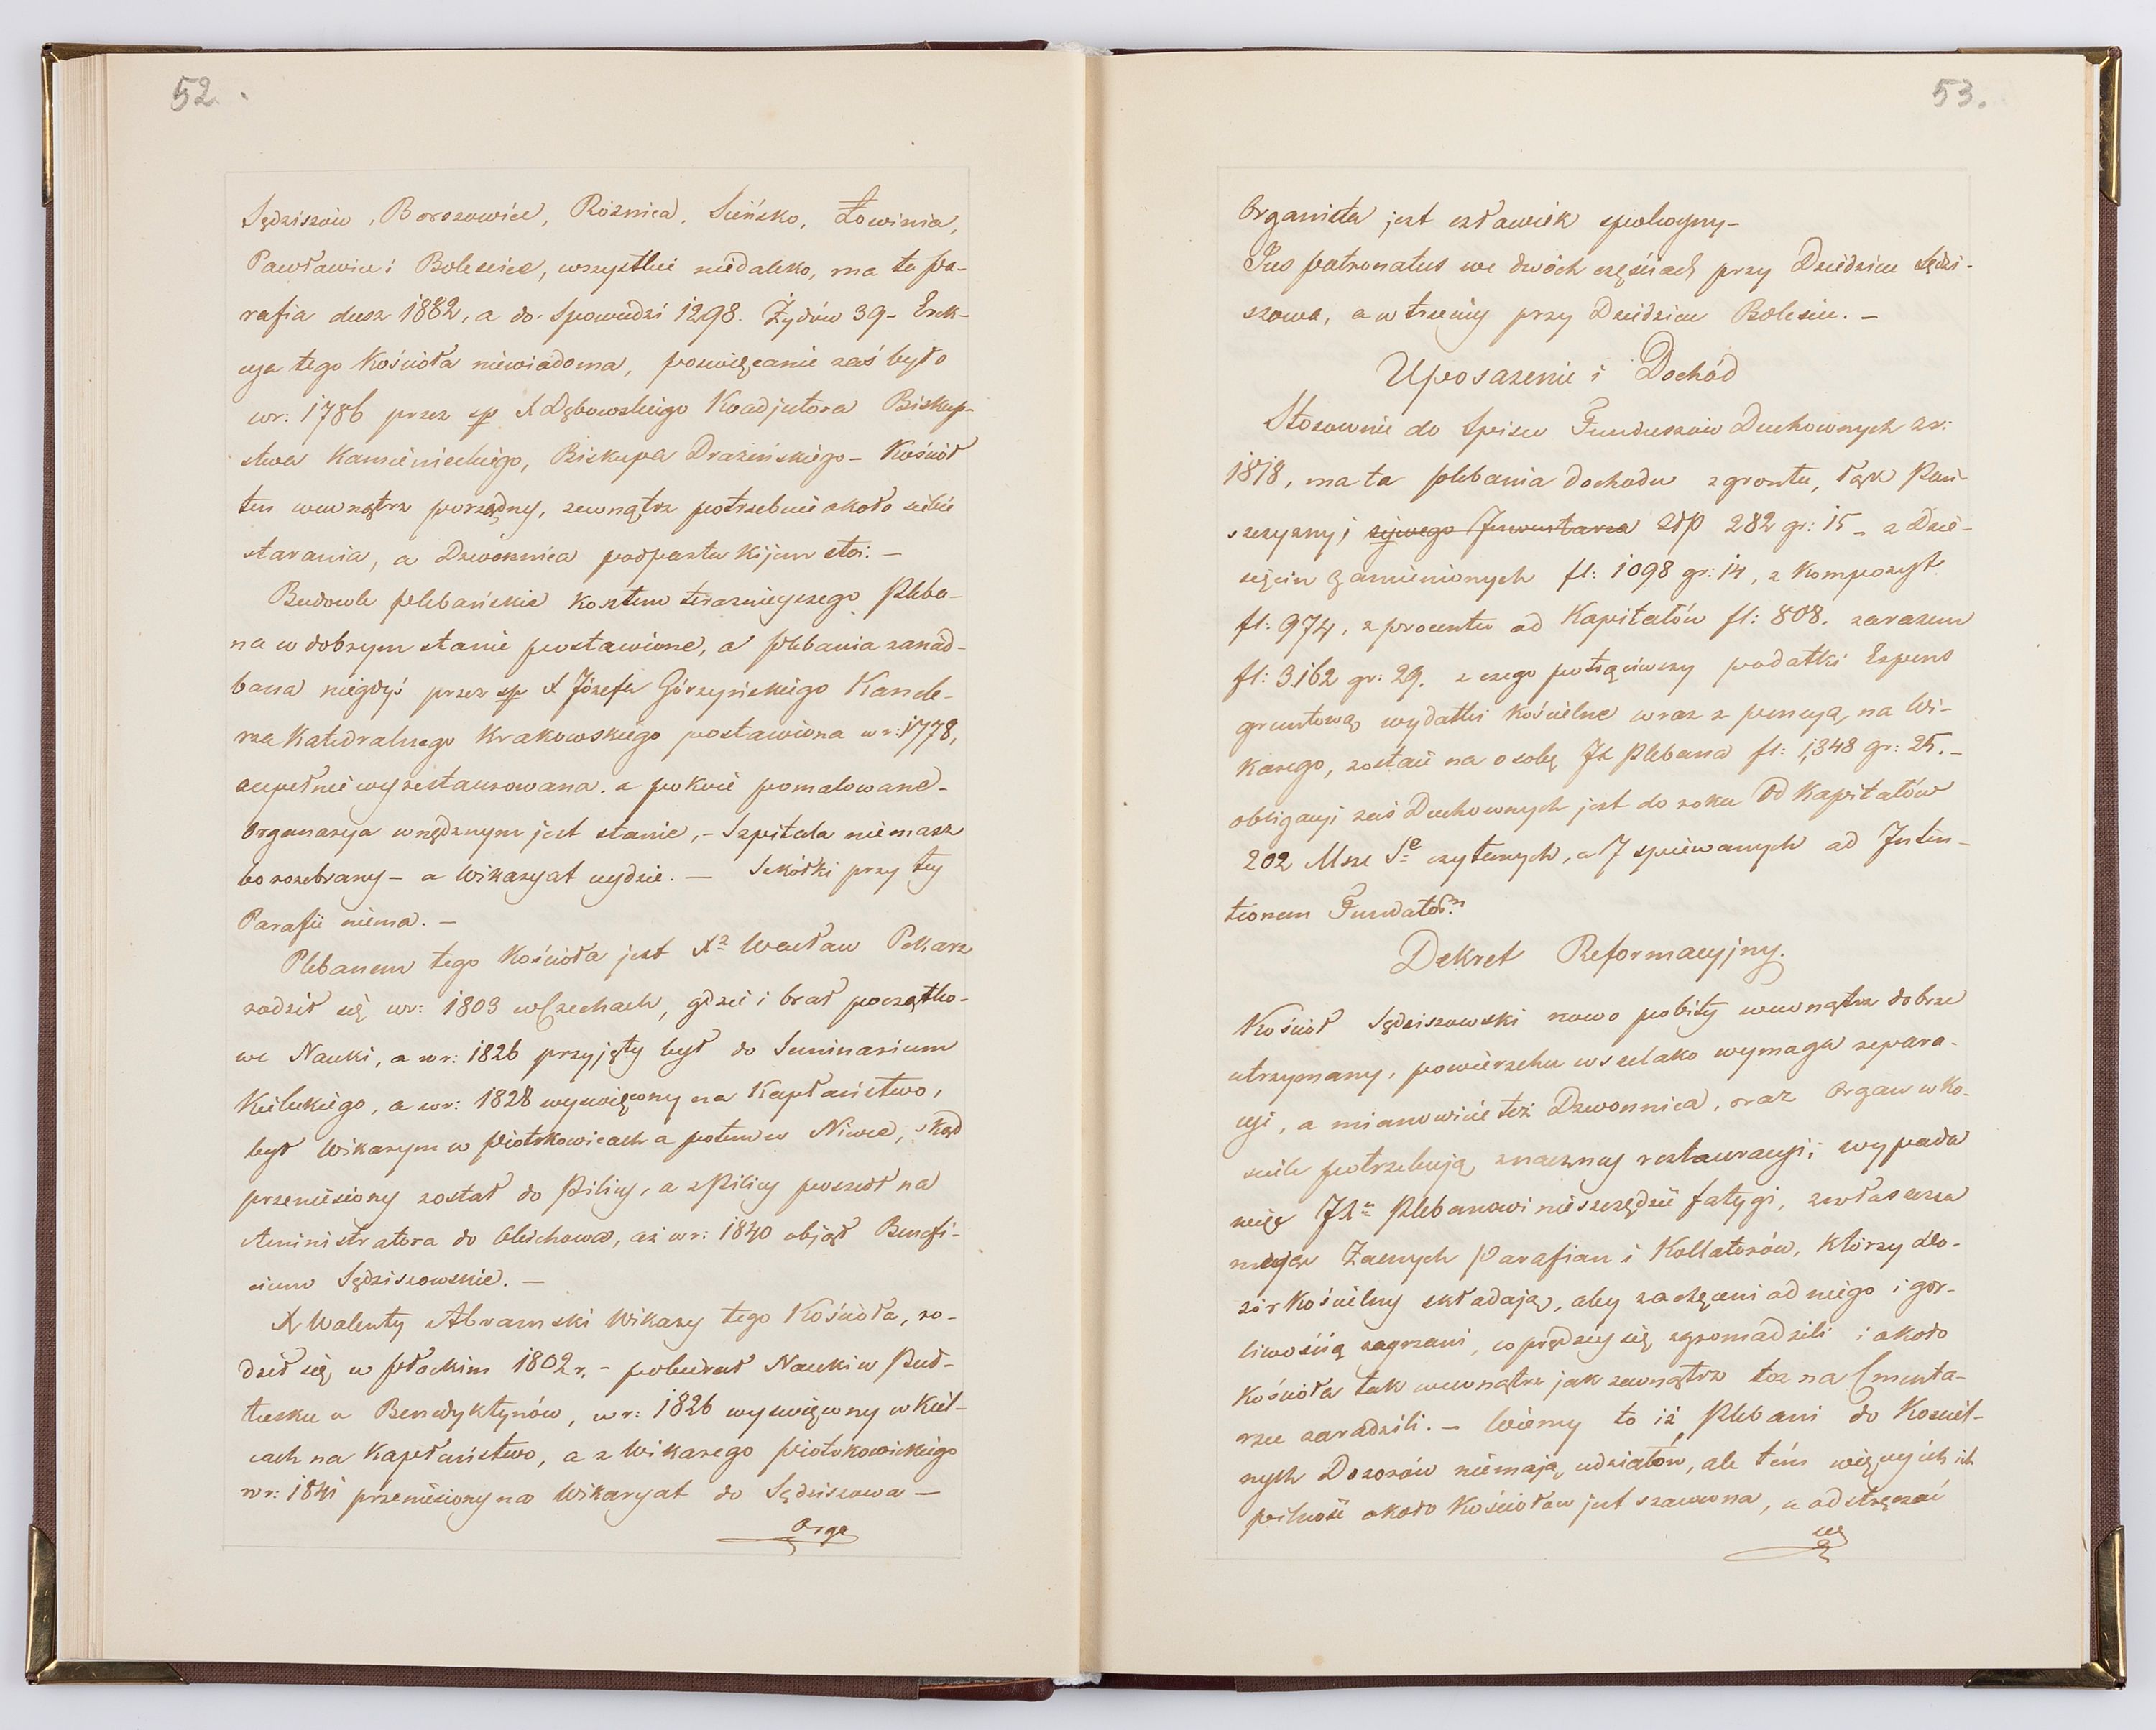 52.
Sędziszów, Boroszowice, Różnica, Sieńsko, Łowinia,
Pawłowice i Bolescice, wszystkie niedaleko, ma ta Pa-
rafia dusz 1882, a do Spowiedzi 1298. Żydów 39 - Erek-
cya tego Kościoła niewiadoma, poswięcanie zaś było
w r: 1786 przez sp X Dębowskiego Koadjutora Biskup-
stwa Kamienieckiego, Biskupa Drazińskiego - Kościół
ten wewnątrz porządny, zewnątrz potrzebuie około siebie
starania, a Dzwonnica podparta kijem stoi: -
Budowle plebańskie kosztem teraznieyszego Pleba-
na w dobrym stanie postawione, a plebania zanied-
bana niegdyś przez sp X Józefa Górzyńskiego Kancle-
rza Katedralnego Krakowskiego postawiona w r: 1778,
zupełnie wyrestaurowana, a pokoie pomalowane -
Organarya w nędznym jest stanie, - Szpitala niemasz
bo rozebrany - a Wikaryat uydzie. - Szkółki przy tey
Parafii niema. -
Plebanem tego Kościoła jest X Wacław Pekarz
rodził się w r: 1803 w Czechach, gdzie i brał początko-
we Nauki, a w r: 1826 przyjęty był do Seminarium
Kieleckiego, a w r: 1828 wyswięcony na Kapłaństwo,
był Wikarym w Piotrkowicach a potem w Niwce, skąd
przeniesiony został do Pilicy, a z Pilicy poszedł na
Aministratora do Olechowa, aż w r: 1840 objął Benefi-
cium Sędziszowskie. -
X Walenty Abramski Wikary tego Kościoła, ro-
dził się w Płockim 1802 r. - pobierał Nauki w Puł-
tusku u Benedyktynów, w r: 1826 wyswięcony w Kiel-
cach na Kapłaństwo, a z Wikarego Piotrkowickiego
w r: 1841 przeniesiony na Wikaryat do Sędziszowa -
Orga
53.
Organista jest człowiek spokoyny -
Jus patronatus we dwóch częściach przy Dziedzicu Sędzi-
szowa, a w trzeciey przy Dziedzicu Bolescic. -
Uposazenie i Dochód
Stosownie do Spisu Funduszów Duchownych z r:
1818, ma ta plebania dochodu z gruntu, łąk Pań
szczyzny i żywego Inwentarza złp 282 gr: 15 - z Dzie-
sięcin zamienionych fl: 1098 gr: 14, z Kompozyt
fl: 974, z procentu od Kapitałów fl: 808. zarazem
fl: 3162 gr: 29. z czego potrąciwszy podatki Expens
gruntową wydatki kościelne wraz z pensyą na Wi-
karego, zostaie na osobę JX Plebana fl: 1,348 gr: 25. -
obligacyi zaś Duchownych jest do roku Od Kapitałów
202 Msze Se czytanych, a 7 spiewanych ad Inten-
tionem Fundator:
Dekret Reformacyjny.
Kościół Sędziszowski nowo pobity wewnątrz dobrze
utrzymany, powierzchu wszelako wymaga repara-
cyi, a mianowicie też Dzwonnica, oraz Organ w Ko-
sciele potrzebują znaczney restauracyi; wypada
więc JX Plebanowi nieszczędzić fatygi, zwłaszcza
mając Zacnych Parafian i Kollatorów, którzy do-
zór Kościelny składają, aby zachęceni od niego i gor-
liwością zagrzani, co prędzey się zgromadzili i około
Kościoła tak wewnątrz jak zewnątrz toż na Cmenta-
rzu zaradzili. - Wiemy to iż Plebani do Kosciel-
nych Dozorów niemają udziałow, ale tem więcey ich
pilność około Kościołow jest szanowna, a odstręczać
się